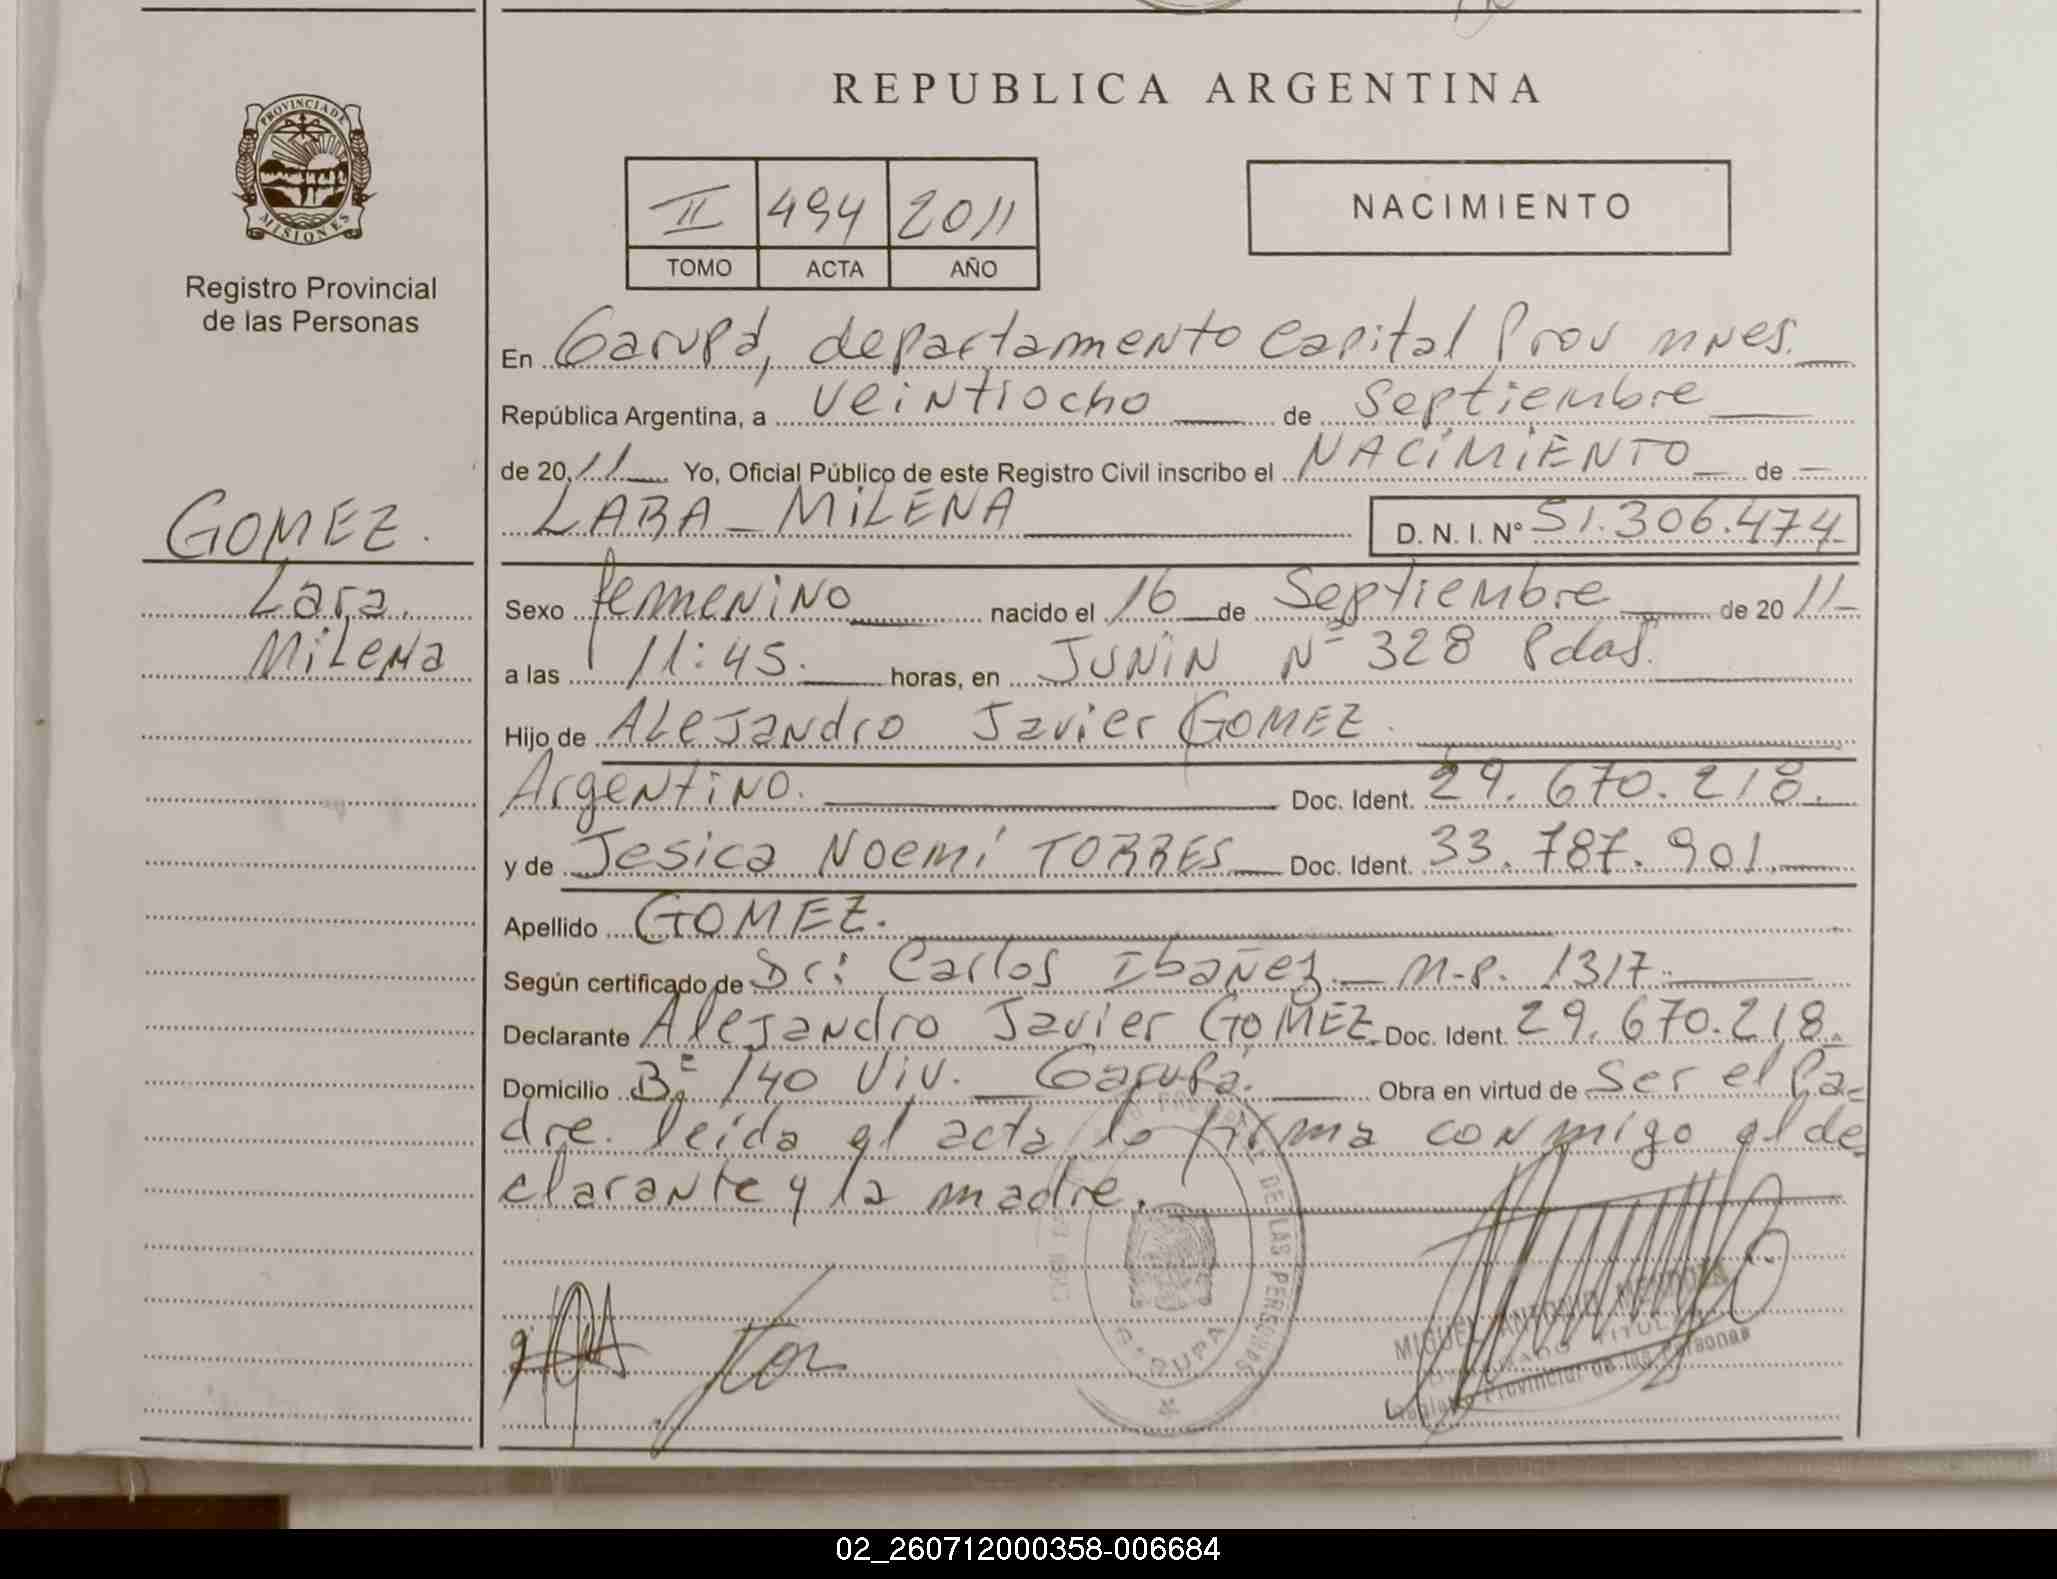 REPUBLICA ARGENTINA
PROVINCIA DE
MISIONES
Registro Provincial
de las Personas
II 494 2011
TOMO ACTA AÑO
NACIMIENTO
En Garupá, departamento Capital Prov mnes.
República Argentina, a veintiocho de septiembre
de 2011 Yo, Oficial Público de este Registro Civil inscribo el NACIMIENTO de
LARA - MILENA D. N. I. Nº 51.306.474
GOMEZ.
Lara.
Milena
Sexo femenino nacido el 16 de Septiembre de 2011
a las 11:45. horas, en JUNIN Nº 328 Pdas.
Hijo de Alejandro Javier GOMEZ.
Argentino. Doc. Ident. 29.670.218.
y de Jesica Noemí TORRES Doc. Ident. 33.787.901.
Apellido GOMEZ.
Según certificado de Dr: Carlos Ibañez. M.P. 1317.
Declarante Alejandro Javier GOMEZ. Doc. Ident. 29.670.218.
Domicilio Bº 140 Viv. Garupá. Obra en virtud de ser el Pa-
dre. leída el acta la firma conmigo el de
clarante y la madre.
DE LAS PERSONAS
GARUPA
MIGUEL ANTONIO MENDOZA
TITULAR
Registro Provincial de las Personas
02_260712000358-006684